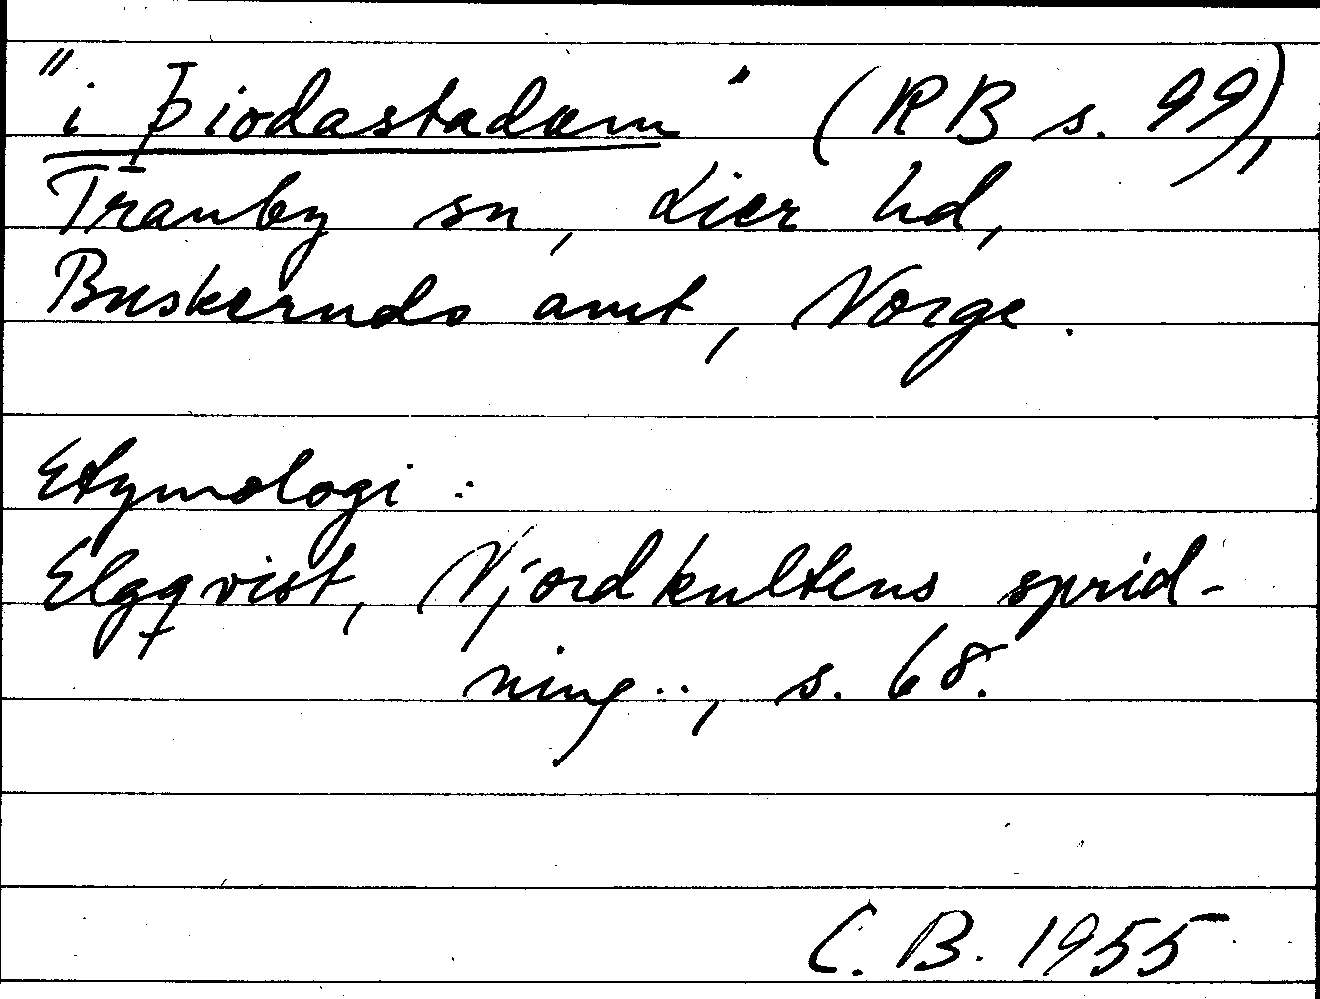 "i þiodastadum" (RB s. 99),
Tranby sn, Lier hd,
Buskeruds amt, Norge.
Etymologi:
Elgqvist, Njordkultens sprid-
ning.., s. 68.
C. B. 1955